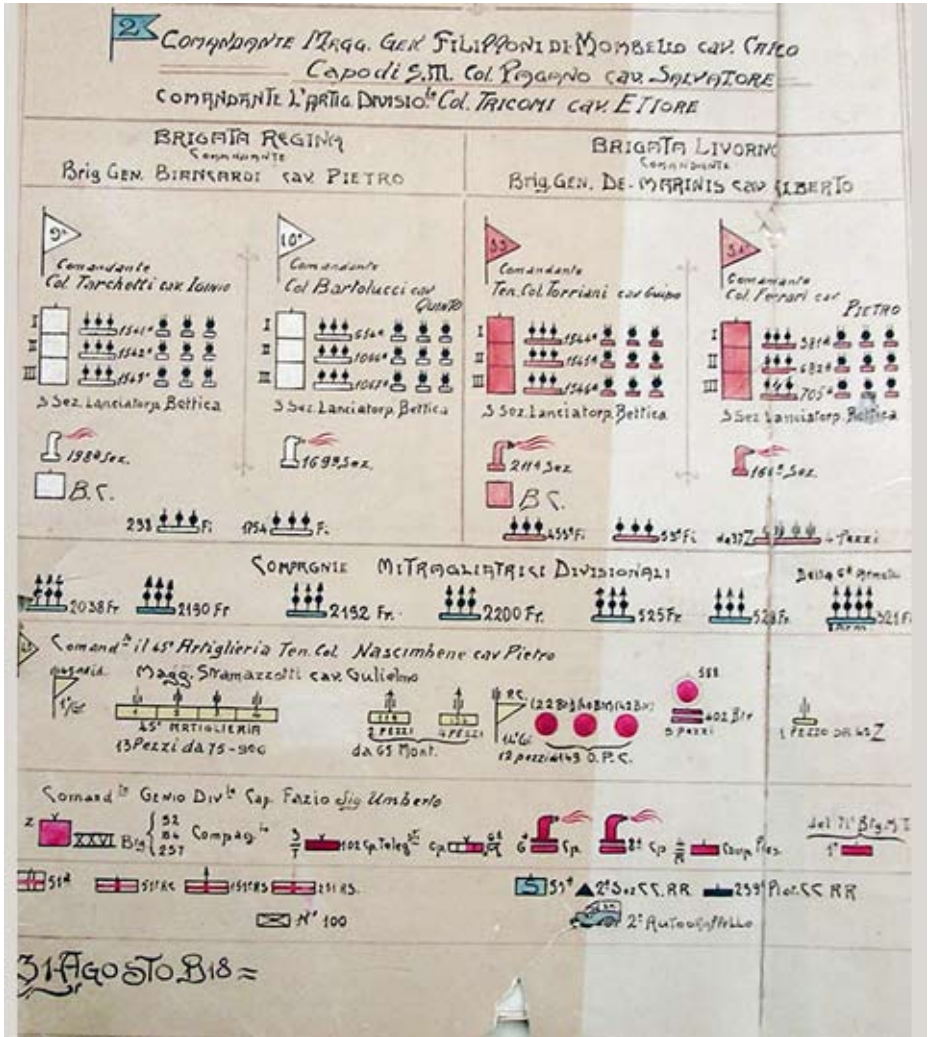 2
COMANDANTE MAGG. GEN FILIPPONI DI MOMBELLO cav. CARLO
Capo di S.M. Col. PAGANO cav. SALVATORE
COMANDANTE L'ARTIG. DIVISIO.le Col. TRICOMI cav. ETTORE
BRIGATA REGINA
COMANDANTE
Brig. GEN. BIANCARDI cav. PIETRO
BRIGATA LIVORNO
COMANDANTE
Brig. GEN. DE-MARINIS cav ALBERTO
9°
Comandante
Col. Tarchetti cav.
I
II
III
1541ª
1542ª
1543ª
3 Sez. Lanciatorp. Bettica
198ª Sez.
B.C.
10°
Comandante
Col Bartolucci cav
QUINTO
I
II
III
654ª
1066ª
1067ª
3 Sez. Lanciatorp. Bettica
169ª Sez.
33
Comandante
Ten. Col. Torriani cav Guido
I
II
III
1544ª
1545ª
1546ª
3 Sez. Lanciatorp. Bettica
211ª Sez
B C.
34°
Comandante
Col. Ferrari cav
PIETRO
I
II
III
381ª
682ª
705ª
3 Sez Lanciatorp. Bettica
Sez
293 Fi
1754 Fi
455ª Fi
53ª Fi
da 37 Z 4 Pezzi
COMPAGNIE MITRAGLIATRICI DIVISIONALI
Della 6ª Armata
2038 Fr.
2190 Fr
2192 Fr.
2200 Fr.
525 Fr
Fr.
521 F
Comand.te il 45° Artiglieria Ten. Col Nascimbene cav Pietro
Magg. Stramazzotti cav. Gulielmo
1° Gr
1 2 3 4
45° ARTIGLIERIA
13 Pezzi da 75-906
2 PEZZI
4 PEZZI
da 65 Mont.
P.C.
14° Gr
12 pezzi da 149 O.P.C.
588
402 Btr
3 pezzi
1 PEZZO DA
Comand.te GENIO Div.le Cap. Fazio sig Umberto
Z
XXVI Btg
92
84
237
Compag.ie
102 Cp. Teleg
Cp.
6ª Cp.
8ª Cp
del 71° Btg. M.T.
1ª
51ª
51ª RC
151ª RS
251 RS.
S 53ª
2ª Sez CC. RR.
259° Plot. CC RR
N° 100
2° AUTODRAPPELLO
31 AGOSTO 918 =